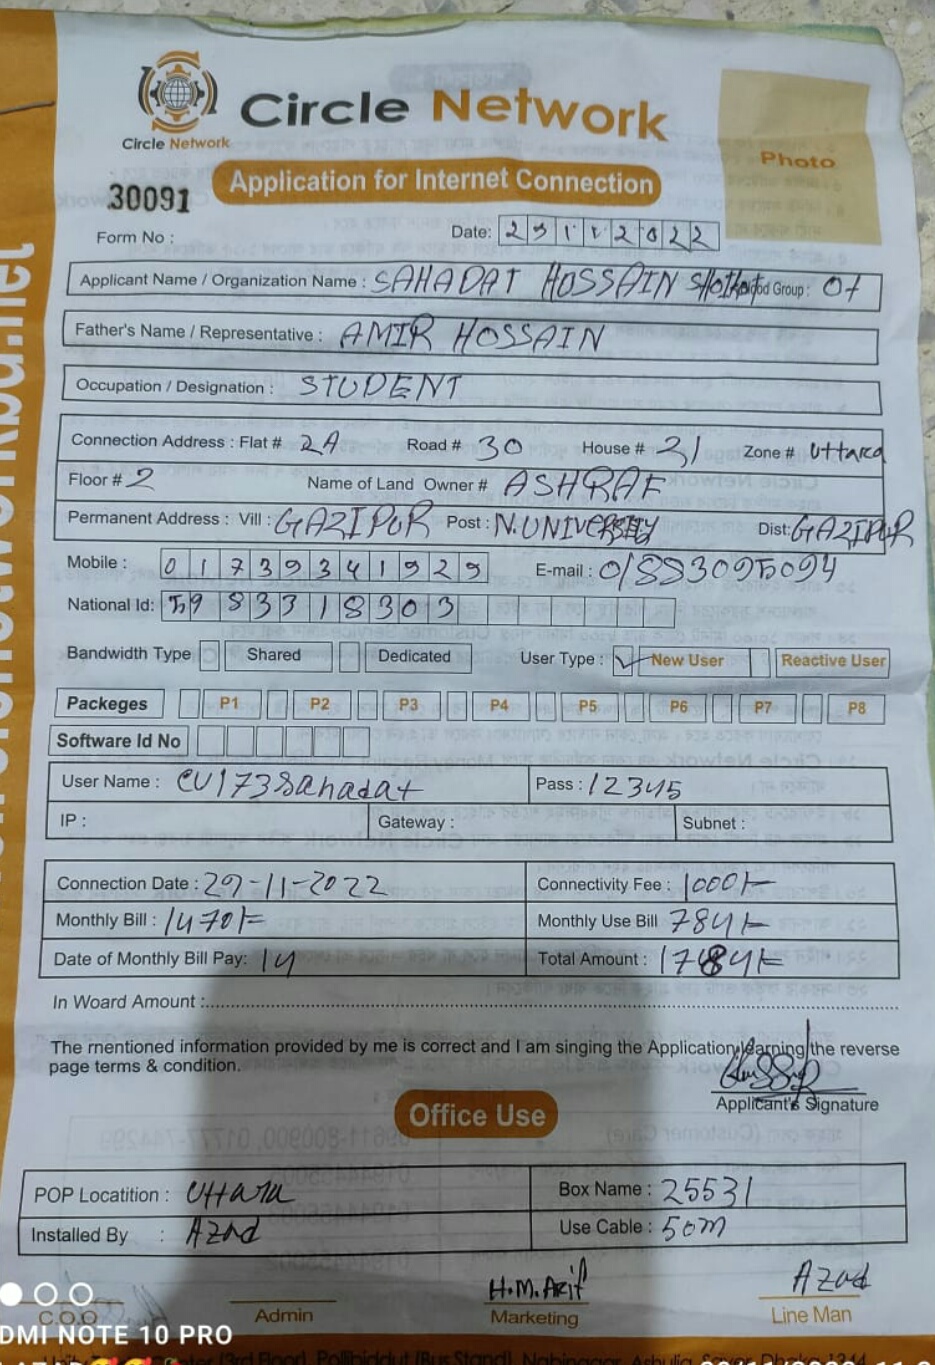 Circle Network
Circle Network
Photo
Application for Internet Connection
30091
Form No :
Date: 29112022
Applicant Name / Organization Name : SAHADAT HOSSAIN Group: O+
Father's Name / Representative : AMIR HOSSAIN
Occupation / Designation : STUDENT
Connection Address : Flat # 2A Road # 30 House # 31 Zone # Uttara
Floor # 2 Name of Land Owner # ASHRAF
Permanent Address : Vill : GAZIPUR Post : N.UNIVERSITY Dist: GAZIPUR
Mobile : 01739341929 E-mail : 01883095094
National Id: 5983318303
Bandwidth Type Shared Dedicated User Type : ✓ New User Reactive User
Packeges P1 P2 P3 P4 P5 P6 P7 P8
Software Id No
User Name : CU173Sahadat Pass : 12345
IP : Gateway : Subnet :
Connection Date : 29-11-2022 Connectivity Fee : 1000/-
Monthly Bill : 1470/= Monthly Use Bill 784/-
Date of Monthly Bill Pay: 14 Total Amount : 1784/=
In Woard Amount :
The mentioned information provided by me is correct and I am singing the Application, learning the reverse
page terms & condition.
Applicant's Signature
Office Use
POP Locatition : Uttara Box Name : 25531
Installed By : Azad Use Cable : 50m
H.M.Arif Azad
C.O.O Admin Marketing Line Man
DMI NOTE 10 PRO